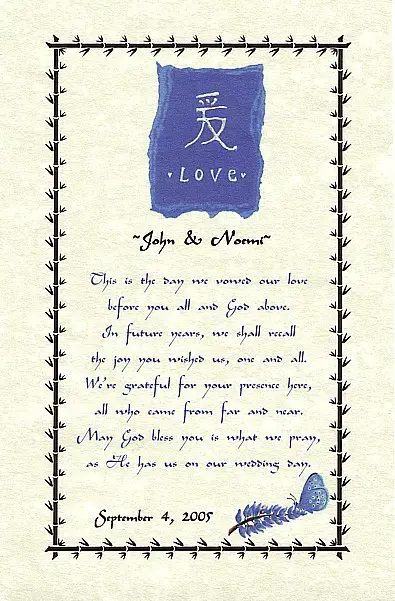 爱
• LOVE •
~John & Noemi~
This is the day we vowed our love
before you all and God above.
In future years, we shall recall
the joy you wished us, one and all.
We're grateful for your presence here,
all who came from far and near.
May God bless you is what we pray,
as He has us on our wedding day.
September 4, 2005